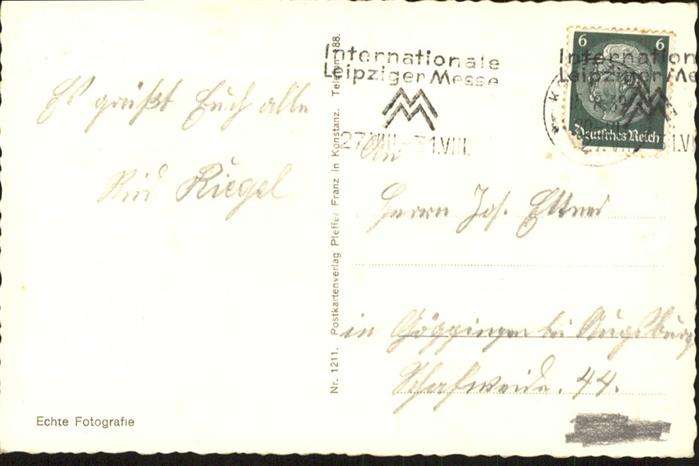 Internationale
Leipziger Messe
27.VIII.-31.VIII.
6 6
Deutsches Reich
Internation
Leipziger Me
Es grüßt Euch alle
Riegel
An
Herrn Jos. Ettner
in Göggingen bei Augsburg
Schafweide. 44.
Nr. 1211. Postkartenverlag Pfeffer Franz in Konstanz. Telefon 388.
Echte Fotografie